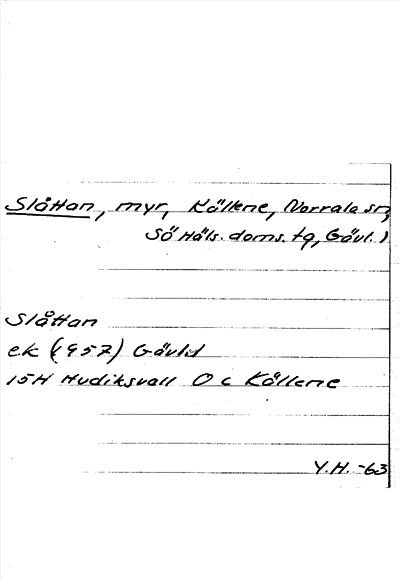 Slåttan, myr, Källene, Norrala sn,
Sö Häls. doms. tg, Gävl. l
Slåttan
ek (1957) Gävl. l
15H Hudiksvall 0 c Källene
Y.H. -63